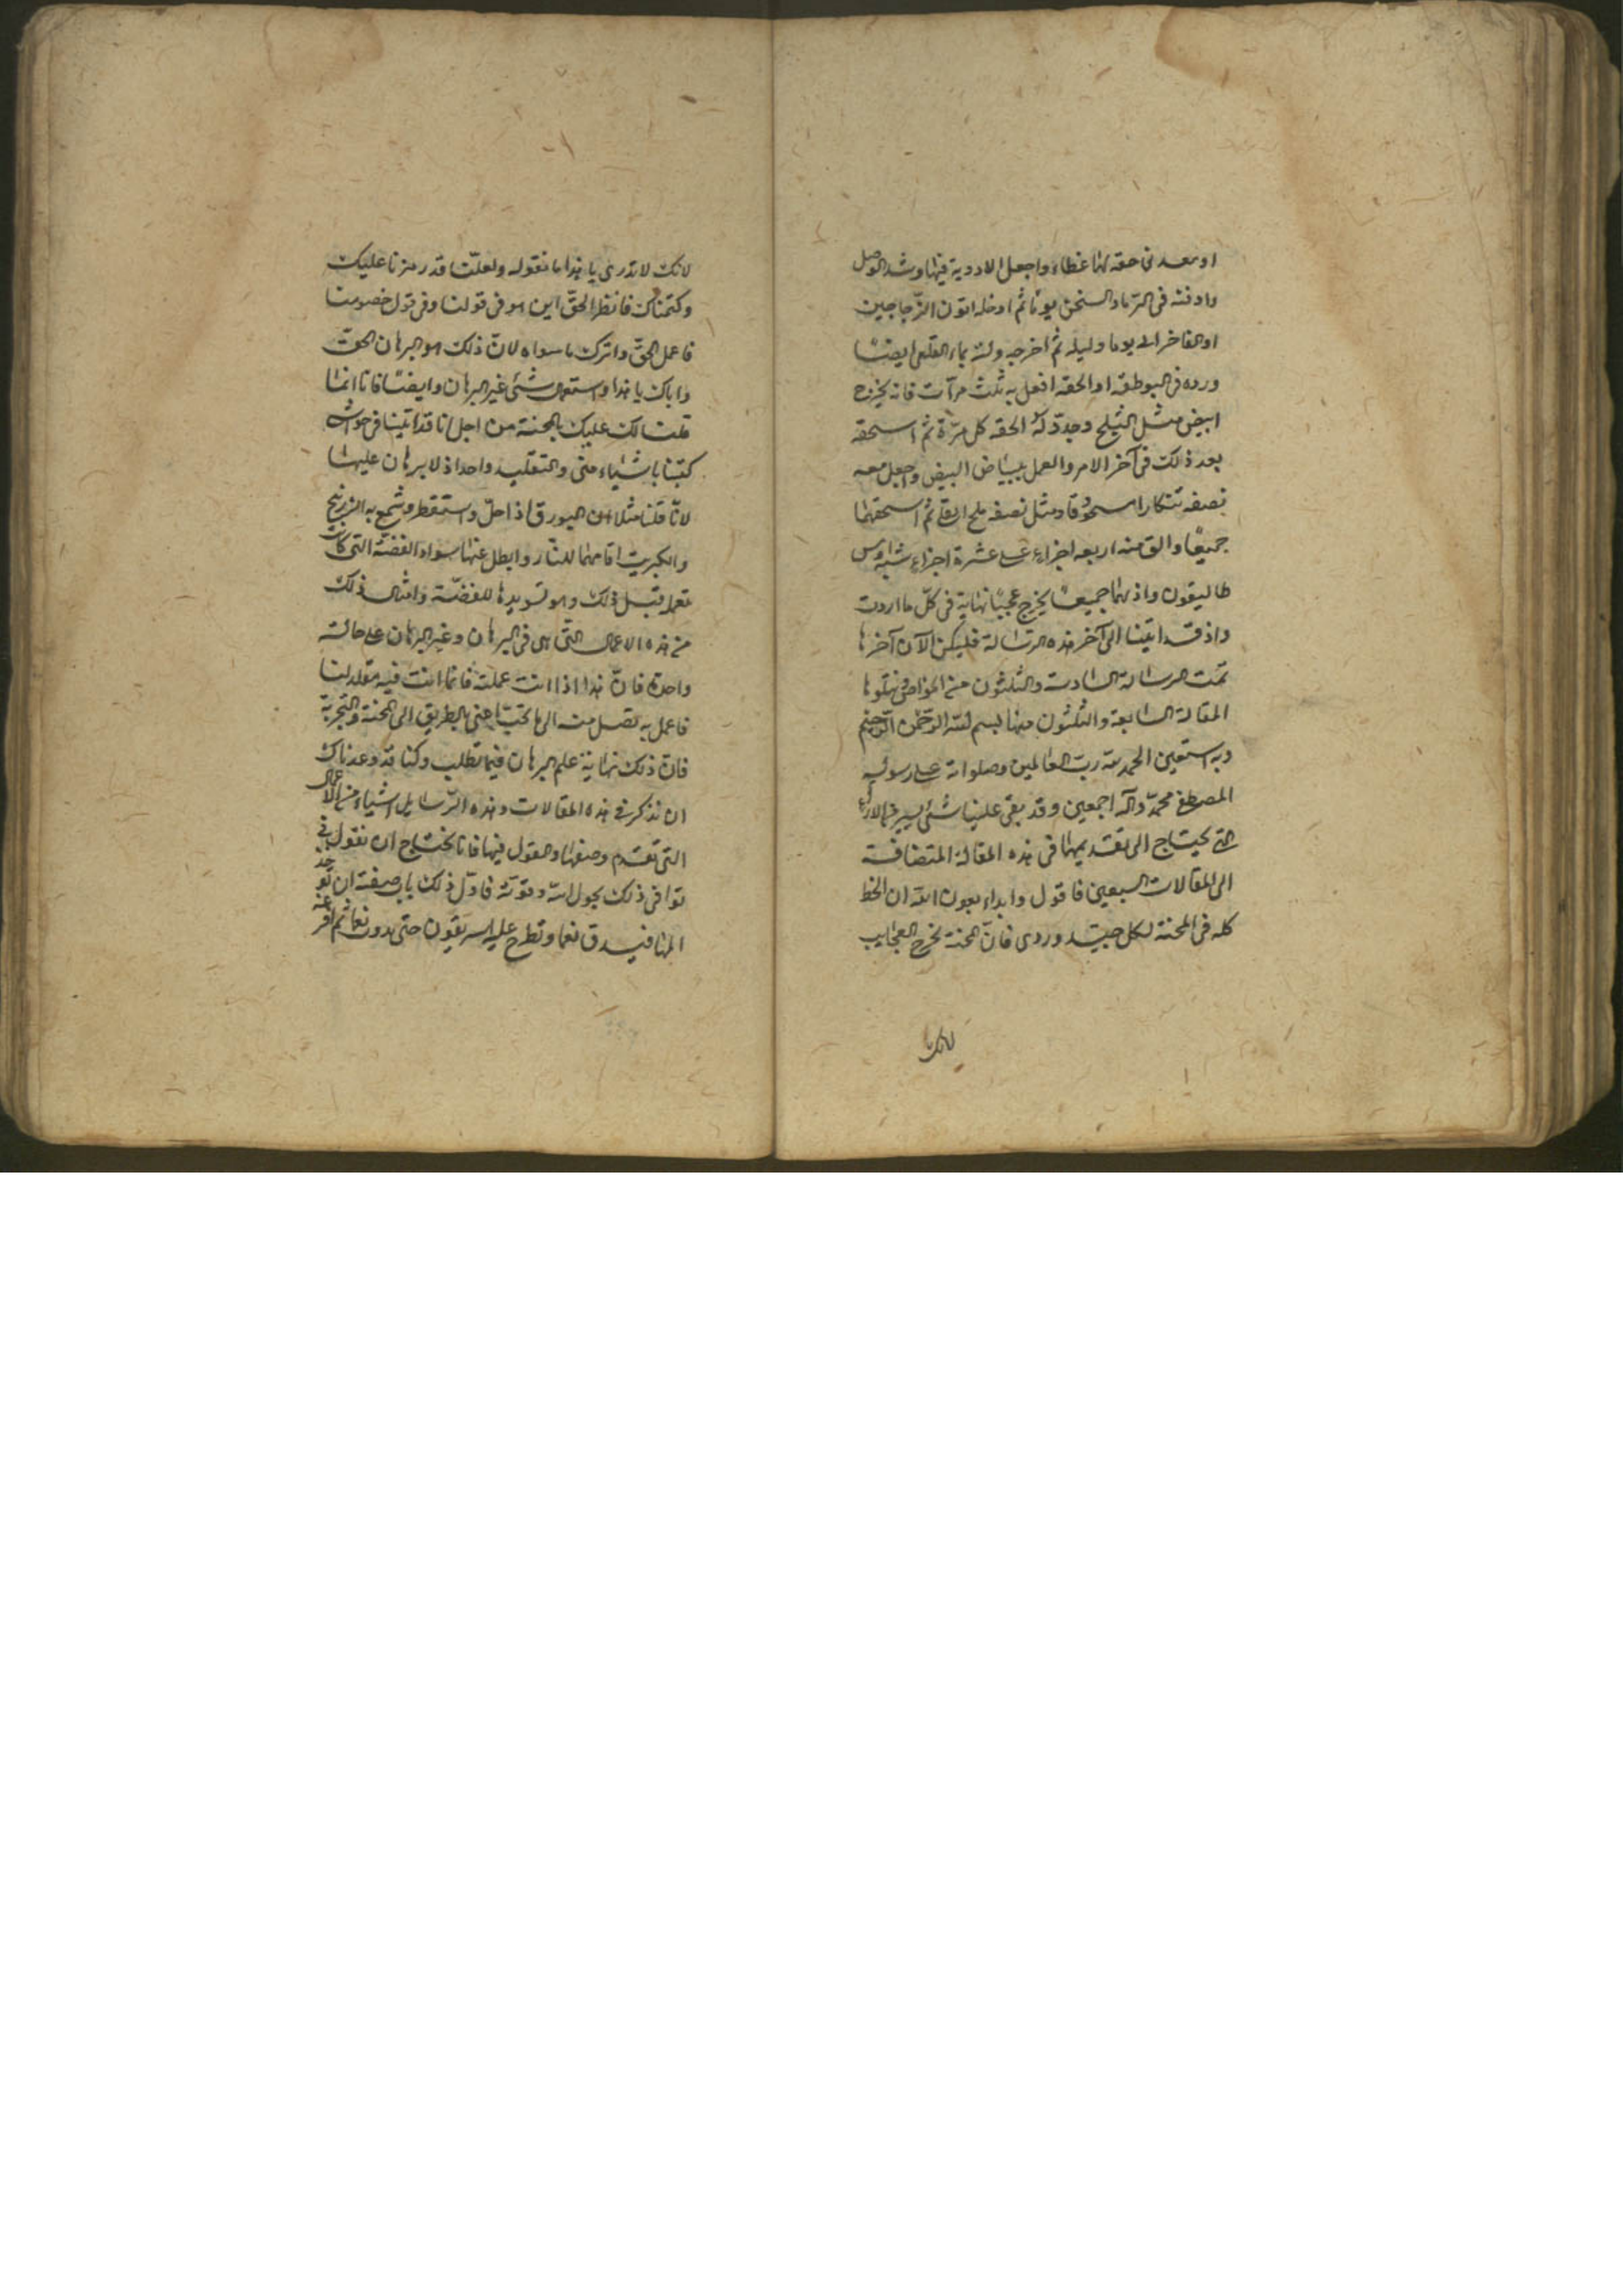 او معدنى حقه لها غطاء واجعل الادوية فيها وشد الوصل
وادفنه فى الرماد السخن يوما ثم ادخله اتون الزجاجين
او الفاخر الى يوما وليله ثم اخرجه ولته بماء القلعى ايضا
ورده فى البوطقه او الحقه افعل به ثلث مرات فانه يخرج
ابيض مثل الثلج وجدد له الحقه كل مرة ثم اسحقه
بعد ذلك فى آخر الامر والعمل ببياض البيض واجعل معه
نصفه تنكارا مسحوقا ومثل نصفه ملح القلى ثم اسحقهما
جميعا والق منه اربعه اجزاء على عشرة اجزاء شبه اوس
طاليقون واذبهما جميعا يخرج عجيبا نهاية فى كل ما اردت
واذ قد اتينا الى آخر هذه الرسالة فليكن الآن آخرها
تمت الرسالة السادسة والثلثون من الخواص يتلوها
المقالة السابعة والثلثون منها بسم الله الرحمن الرحيم
وبه استعين الحمد لله رب العالمين وصلواته على رسوله
المصطفى محمد وآله اجمعين وقد بقى علينا شئ يسير
يحتاج الى تقديمها فى هذه المقالة المتضافة
الى المقالات السبعين فاقول وابداء بعون الله ان الخط
كله فى المحنة لكل جيد وردى فان المحنة تخرج العجايب
لانك لا
لانك لا تدرى يا هذا ما نقوله ولعلنا قد رمزنا عليك
وكتمناك فانظر الحق اين هو فى قولنا وفى قول خصومنا
فاعمل الحق واترك ما سواه لان ذلك هو البرهان الحق
واياك يا هذا واستعمال شئ غير البرهان وايضا فانا انما
قلنا لك عليك بالمحنة من اجل انا قد اتينا فى خواص
كتبنا باشياء منى والتقليد واحد اذ لا برهان عليها
لانا قلنا مثلا ان البورق اذا حل واستقطر وشمع به الزرنيخ
والكبريت اقامهما للنار وابطل عنها سواد الفضة التى كانت
تعمله قبل ذلك وهو تسويدها للفضة وامثال ذلك
من هذه الاعمال التى هى فى البرهان وغير البرهان على حالة
واحدة فان هذا اذا انت عملته فانما انت فيه مقلد لنا
فاعمل به تصل منه الى ما تحب اعنى بالطريق الى المحنة والتجربة
فان ذلك نهاية علم البرهان فيما تطلب وكنا قد وعدناك
ان نذكر فى هذه المقالات وهذه الرسايل اشياء من الاعمال
التى تقدم وصفها والقول فيها فانا نحتاج ان نقول فى
توافى ذلك بحول الله وقوته فاول ذلك باب صفته ان توخذ
المنا فيدق نعما وتطرح عليه سريقون حتى يدون نعما ثم افرغه